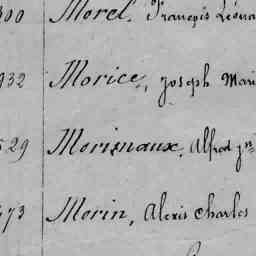 300 Morel, François Léona
932 Morice, Joseph Mari
529 Morisnaux, Alfred
473 Morin, Alexis Charles